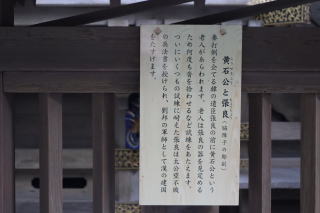 黄石公と張良（猫障子の彫刻）
秦打倒を企てる韓の遺臣張良の前に黄石公という
老人があらわれます。老人は張良の器を見定める
ため何度も沓を拾わせるなど試練をあたえます。
ついにいくつもの試練に耐えた張良は太公望不伝
の兵法書を授けられ、劉邦の軍師として漢の建国
をたすけます。